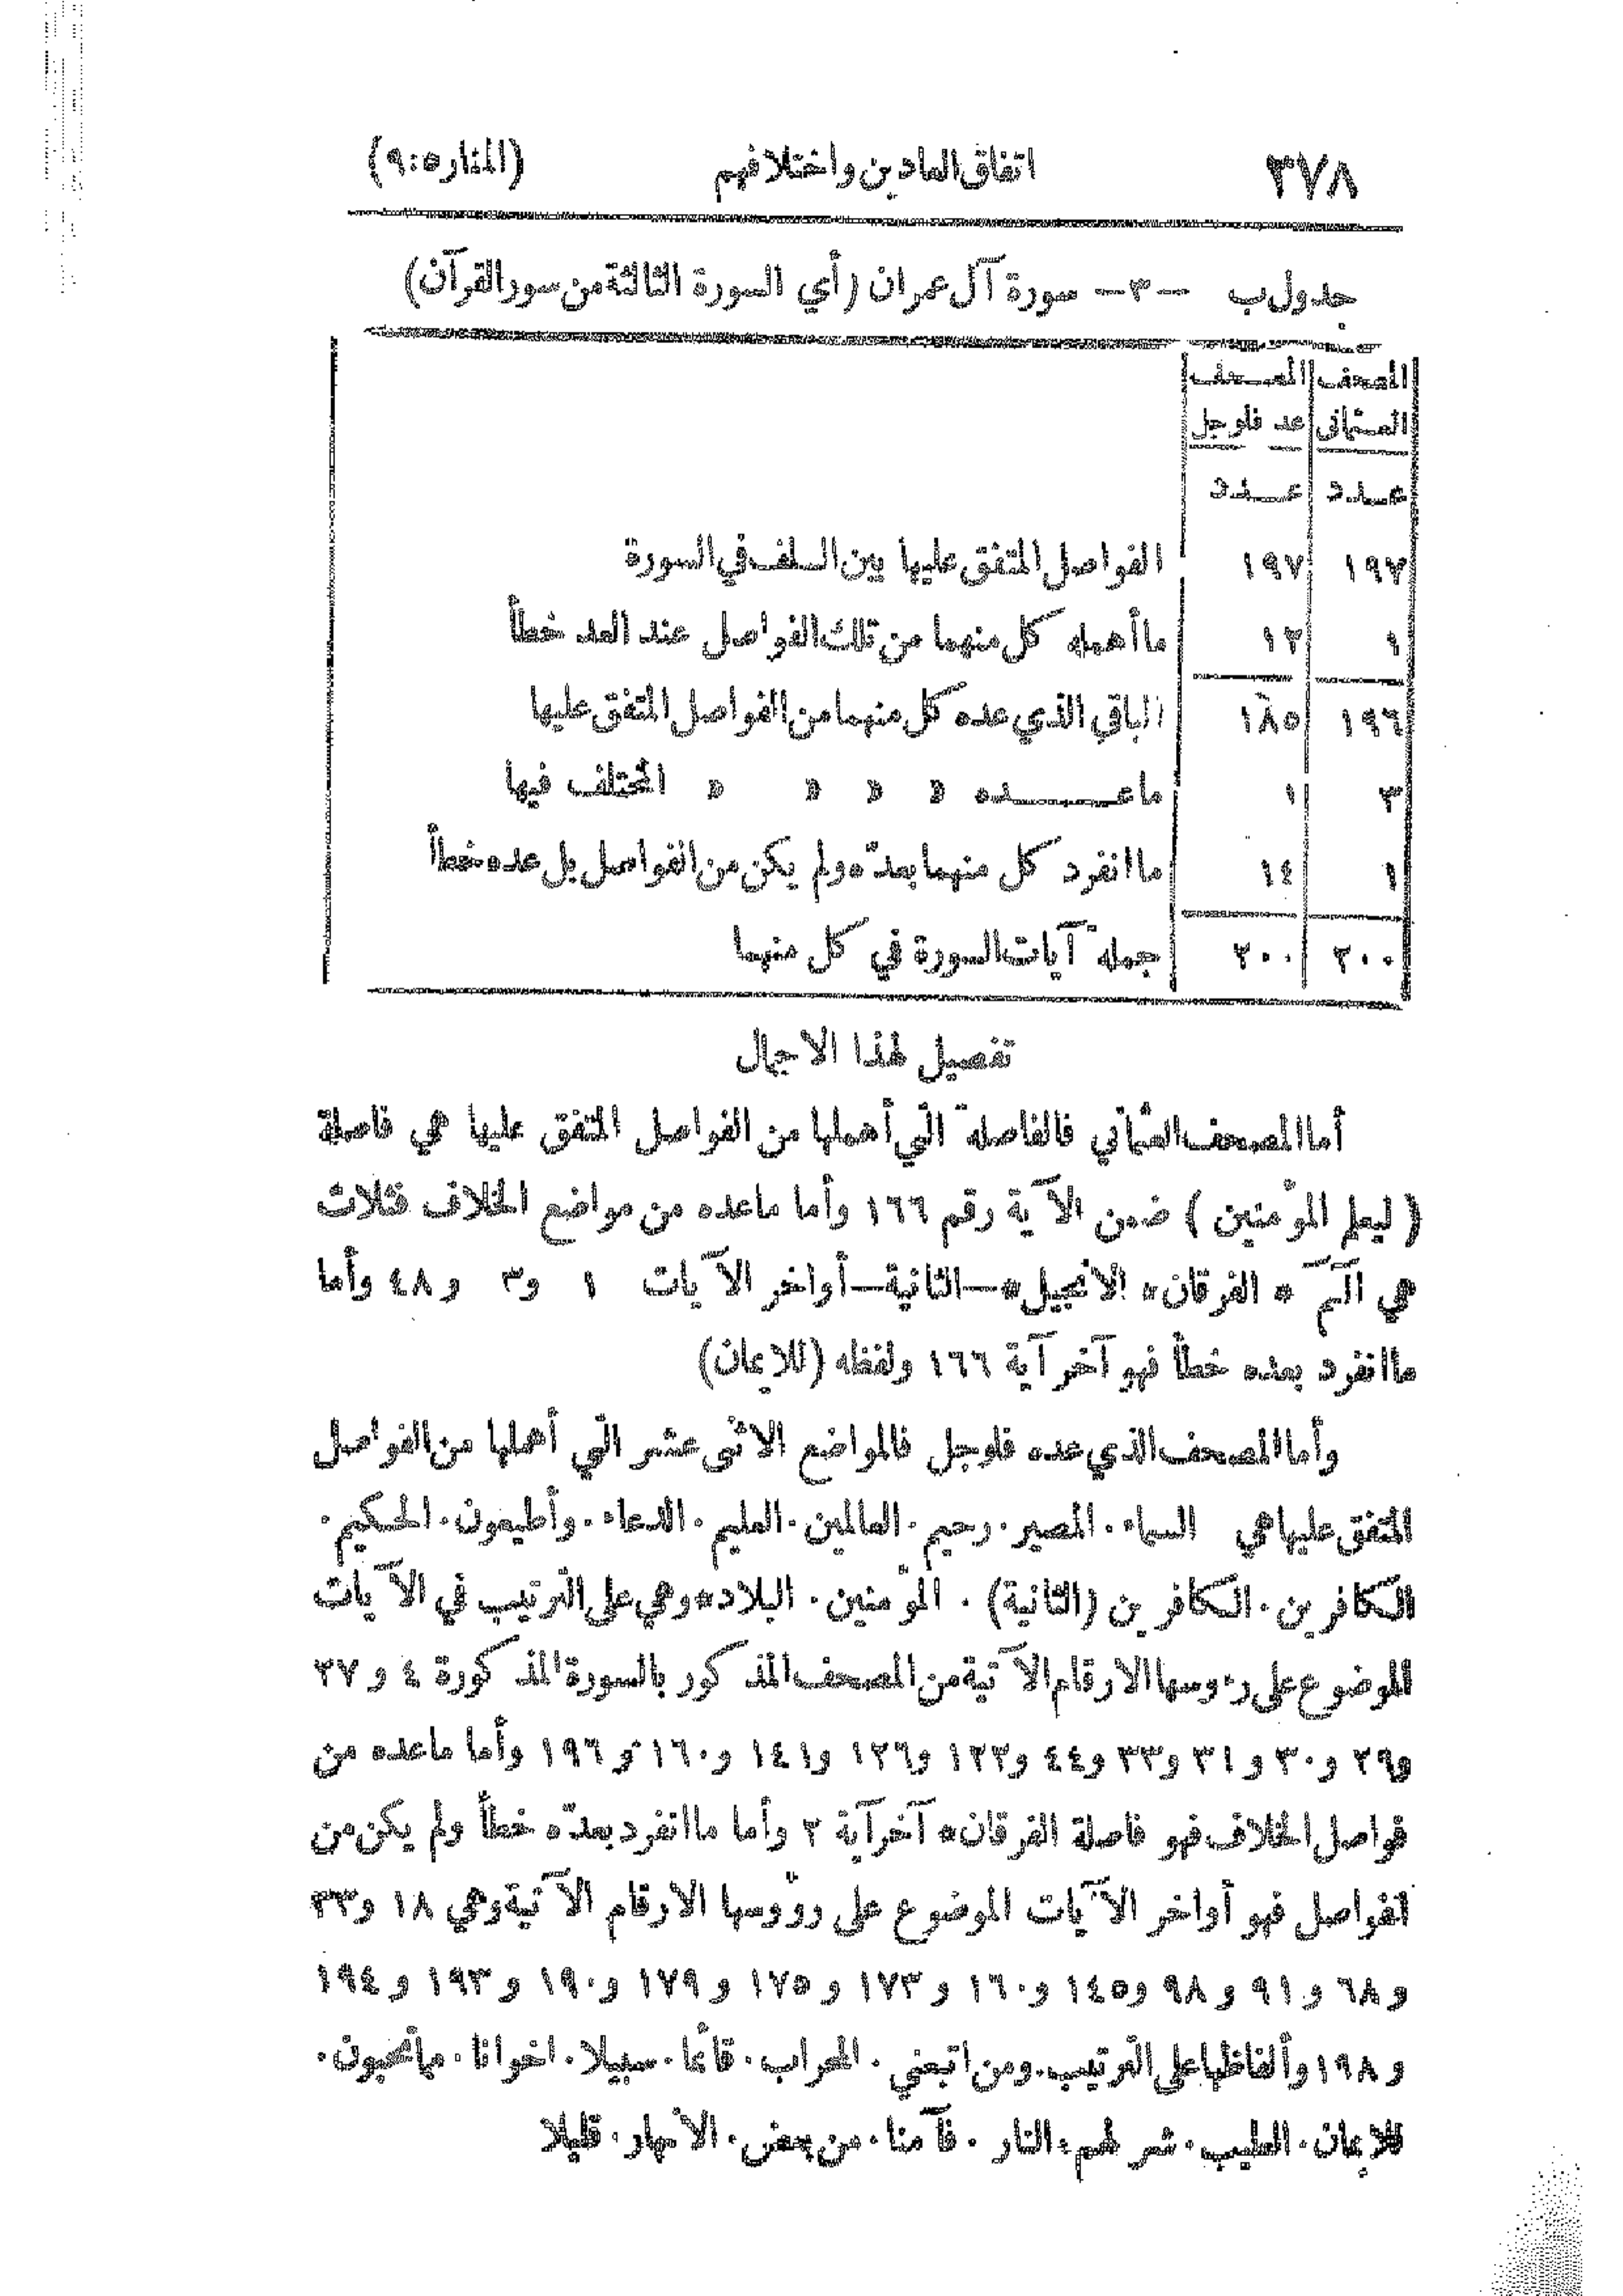 ٣٧٨ اتفاق العادين واختلافهم (المنار ٥:٩)
جدول ب -٣- سورة آل عمران (أي السورة الثالثة من سور القرآن)
المصحف المصحف
العثماني عد فلوجل
عدد عدد
١٩٧ ١٩٧ الفواصل المتفق عليها بين السلف في السورة
١ ١٢ ما أهمله كل منهما من تلك الفواصل عند العد خطأ
١٩٦ ١٨٥ الباقي الذي عده كل منهما من الفواصل المتفق عليها
٣ ١ ما عده » » » » المختلف فيها
١ ١٤ ما انفرد كل منهما بعدّه ولم يكن من الفواصل بل عده خطأ
٢٠٠ ٢٠٠ جملة آيات السورة في كل منهما
تفصيل لهذا الاجمال
أما المصحف العثماني فالفاصلة التي أهملها من الفواصل المتفق عليها هي فاصلة
( ليعلم المؤمنين ) ضمن الآية رقم ١٦٦ وأما ماعده من مواضع الخلاف فثلاث
هي الٓمٓ * الفرقان* الانجيل*—الثانية—أواخر الآيات ١ و٣ و ٤٨ وأما
ما انفرد بعده خطأ فهو آخر آية ١٦٦ ولفظه (للايمان)
وأما المصحف الذي عده فلوجل فالمواضع الاثنى عشر التي أهملها من الفواصل
المتفق عليها هي السماء . المصير . رحيم . العالمين . العليم . الدعاء . وأطيعون . الحكيم .
الكافرين . الكافرين (الثانية) . المؤمنين . البلاد* وهي على الترتيب في الآيات
الموضوع على رؤوسها الارقام الآتية من المصحف المذكور بالسورة المذكورة ٤ و ٢٧
و٢٩ و٣٠ و٣١ و٣٣ و٤٤ و١٢٣ و١٢٦ و١٤١ و١٦٠ و١٩٦ وأما ماعده من
فواصل الخلاف فهو فاصلة الفرقان* آخر آية ٢ وأما ما انفرد بعدّه خطأ ولم يكن من
الفواصل فهو أواخر الآيات الموضوع على رؤوسها الارقام الآتية وهي ١٨ و٣٣
و٦٨ و٩١ و٩٨ و١٤٥ و١٦٠ و١٧٣ و١٧٥ و١٧٩ و١٩٠ و١٩٣ و١٩٤
و١٩٨ وألفاظها على الترتيب . ومن اتبعني . المحراب . قائما . سبيلا . اخوانا . ماتحبون .
للايمان . الطيب . شر لهم . النار . فآمنا . من بعض . الانهار . قليلا